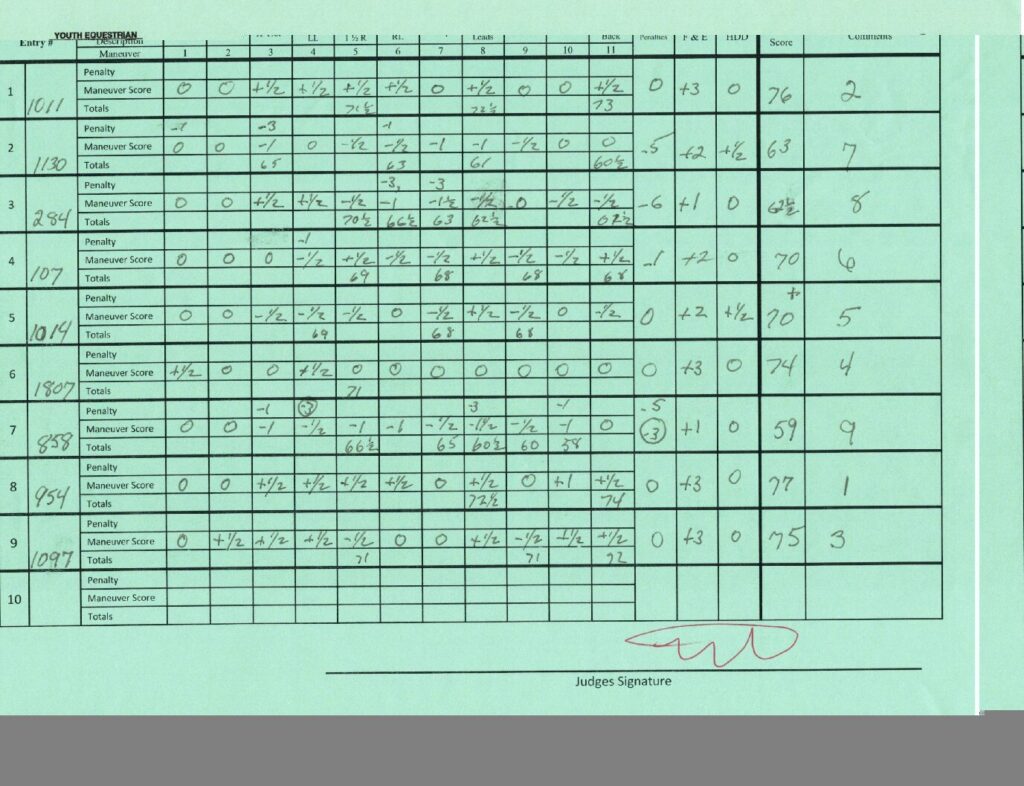 YOUTH EQUESTRIAN
Entry # Description LL 1 ½ R RL Leads Back Penalties F & E HDD Score Comments
Maneuver 1 2 3 4 5 6 7 8 9 10 11
Penalty
1 1011 Maneuver Score 0 0 +½ +½ +½ +½ 0 +½ 0 0 +½ 0 +3 0 76 2
Totals 71½ 72½ 73
Penalty -1 -3 -1
2 1130 Maneuver Score 0 0 -1 0 -½ -½ -1 -1 -½ 0 0 -5 +2 +½ 63 7
Totals 65 63 61 60½
Penalty -3, -3
3 284 Maneuver Score 0 0 +½ +½ -½ -1 -1½ -½ 0 -½ -½ -6 +1 0 62½ 8
Totals 70½ 66½ 63 62½ 62½
Penalty -1
4 107 Maneuver Score 0 0 0 -½ +½ -½ -½ +½ -½ -½ +½ -1 +2 0 70 6
Totals 69 68 68 68
Penalty
5 1014 Maneuver Score 0 0 -½ -½ -½ 0 -½ +½ -½ 0 -½ 0 +2 +½ 70+ 5
Totals 69 68 68
Penalty
6 1807 Maneuver Score +½ 0 0 +½ 0 0 0 0 0 0 0 0 +3 0 74 4
Totals 71
Penalty -1 -3 -3 -1 -5
7 858 Maneuver Score 0 0 -1 -½ -1 -1 -½ -1½ -½ -1 0 -3 +1 0 59 9
Totals 66½ 65 60½ 60 58
Penalty
8 954 Maneuver Score 0 0 +½ +½ +½ +½ 0 +½ 0 +1 +½ 0 +3 0 77 1
Totals 72½ 74
Penalty
9 1097 Maneuver Score 0 +½ +½ +½ -½ 0 0 +½ -½ +½ +½ 0 +3 0 75 3
Totals 71 71 72
Penalty
10 Maneuver Score
Totals
Judges Signature